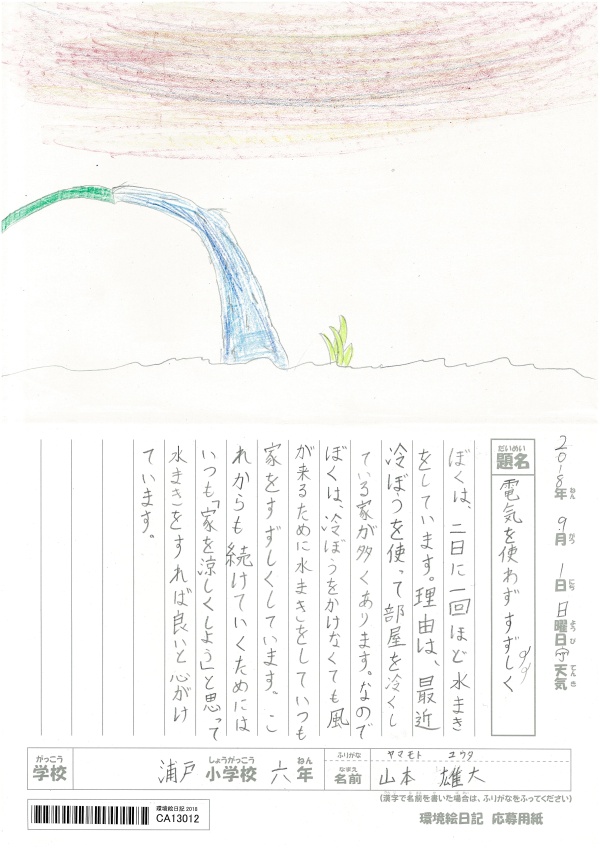 2018年ねん 9月がつ 1日にち 日曜日ようび 天気てんき
題名だいめい 電気を使わず すずしく
ぼくは、二日に一回ほど水まき
をしています。理由は、最近
冷ぼうを使って部屋を冷くし
ている家が多くあります。なので
ぼくは、冷ぼうをかけなくても風
が来るために水まきをしていつも
家をすずしくしています。こ
れからも続けていくためには
いつも「家を涼しくしよう」と思って
水まきをすれば良いと心がけ
ています。
がっこう 学校 浦戸 しょうがっこう 小学校 六 ねん 年
ふりがな ヤマモト ユウタ
なまえ 名前 山本 雄大
(漢字で名前を書いた場合は、ふりがなをふってください)
環境絵日記 応募用紙
環境絵日記 2018
CA13012